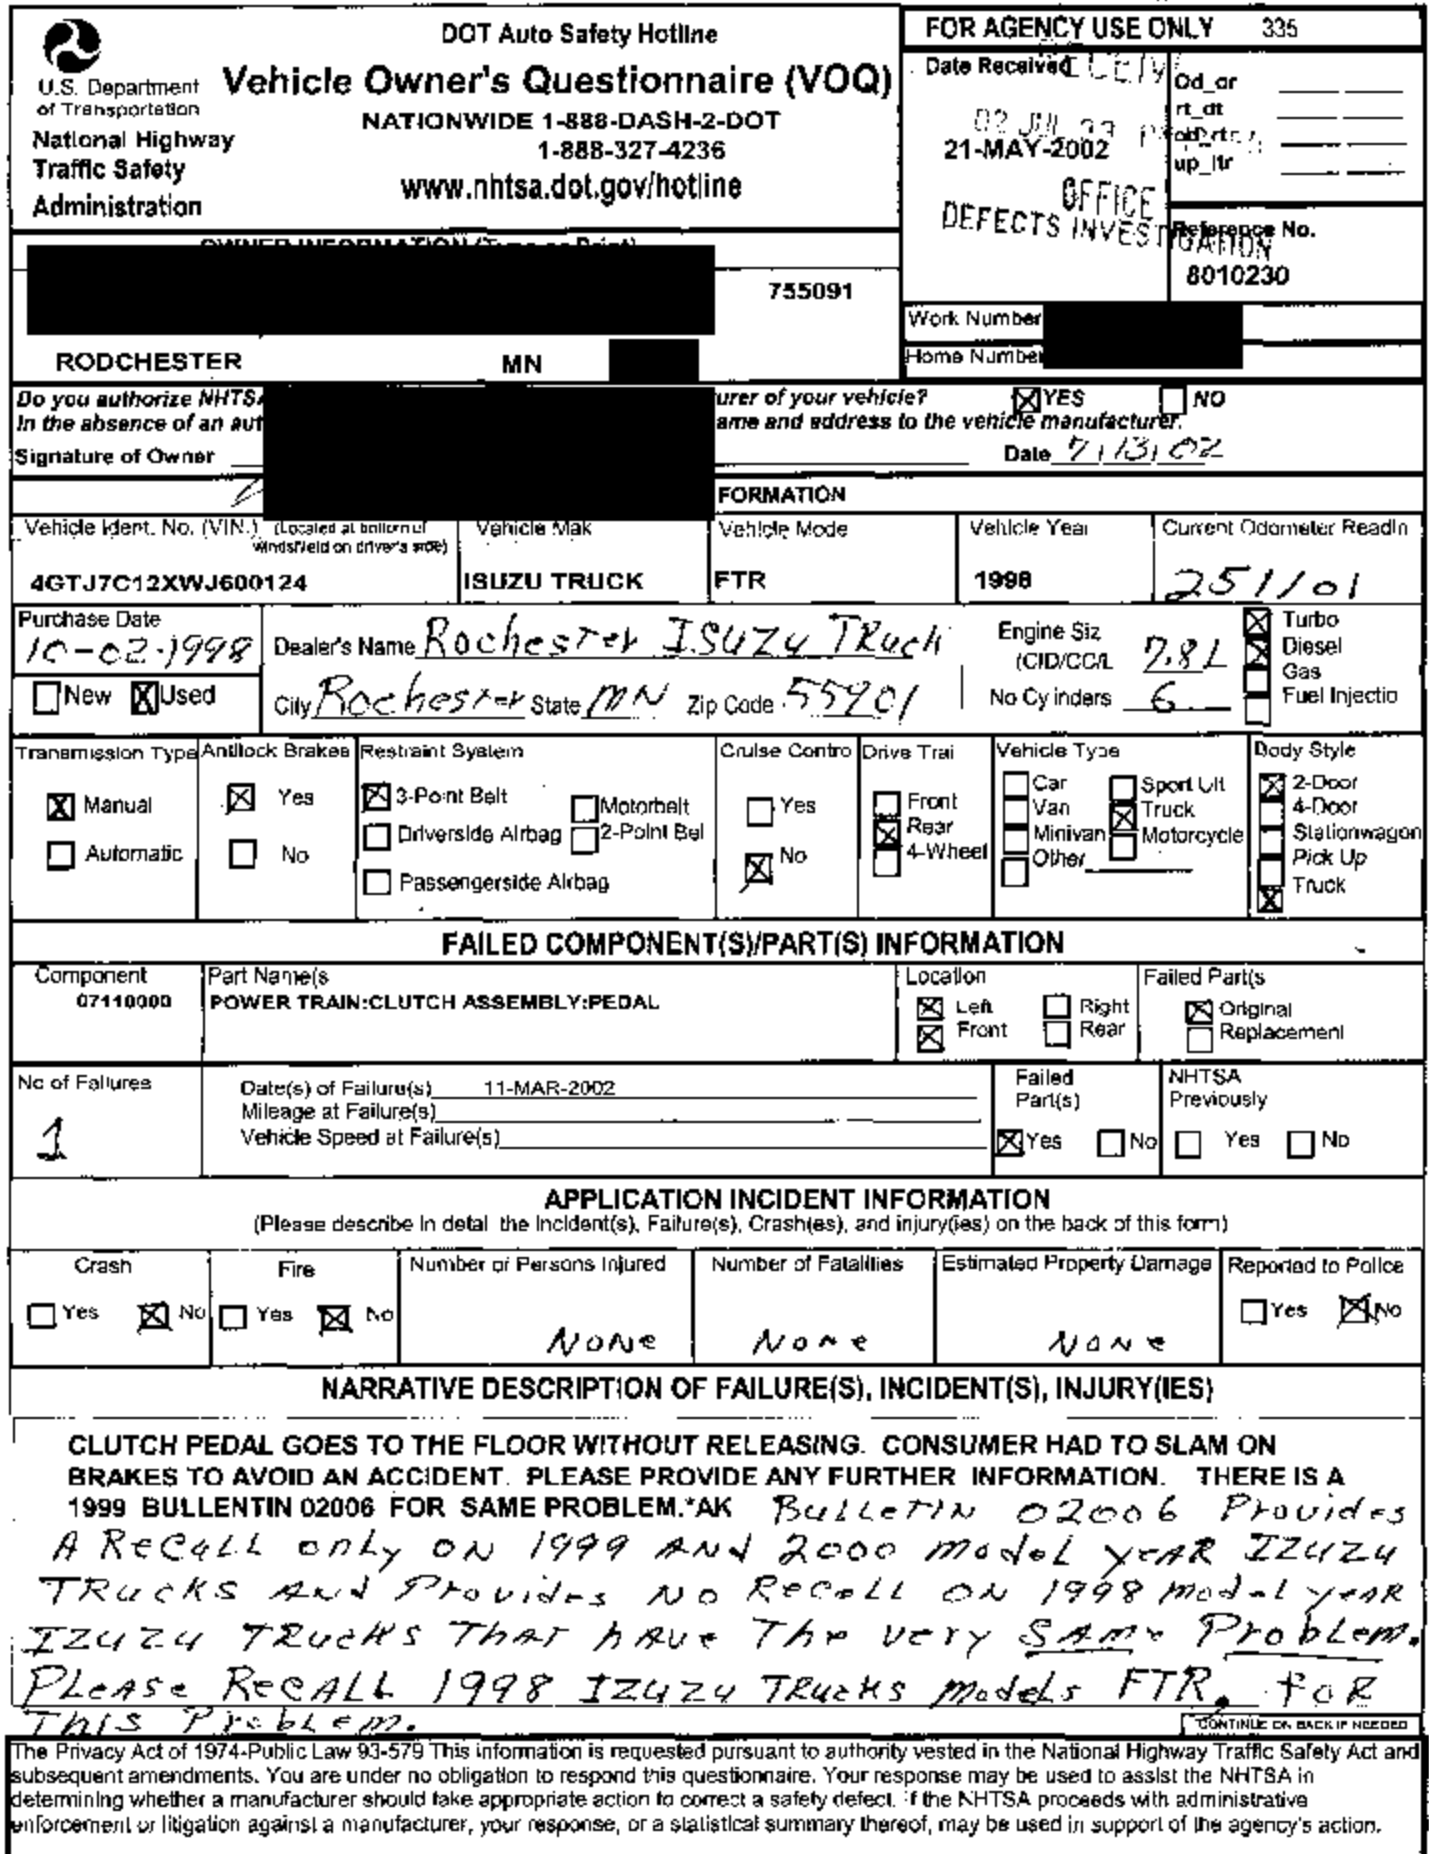 DOT Auto Safety Hotline
Vehicle Owner's Questionnaire (VOQ)
NATIONWIDE 1-888-DASH-2-DOT
1-888-327-4236
www.nhtsa.dot.gov/hotline
U.S. Department
of Transportation
National Highway
Traffic Safety
Administration
FOR AGENCY USE ONLY 335
Date Received
21-MAY-2002
OFFICE
DEFECTS INVESTIGATION
Od_or
rt_dt
up_ltr
Reference No.
8010230
OWNER INFORMATION (Type or Print)
755091
RODCHESTER MN
Work Number
Home Number
Do you authorize NHTSA urer of your vehicle? YES NO
In the absence of an aut ame and address to the vehicle manufacturer.
Signature of Owner Date 7/13/02
FORMATION
Vehicle Ident. No. (VIN.) (Located at bottom of
windshield on driver's side)
4GTJ7C12XWJ600124
Vehicle Mak
ISUZU TRUCK
Vehicle Mode
FTR
Vehicle Year
1998
Current Odometer Readin
251101
Purchase Date
10-02-1998
New Used
Dealer's Name Rochester ISUZU TRuck
City Rochester State MN Zip Code 55901
Engine Siz
(CID/CC/L 7.8L
No Cylinders 6
Turbo
Diesel
Gas
Fuel Injectio
Transmission Type
Manual
Automatic
Antilock Brakes
Yes
No
Restraint System
3-Point Belt
Driverside Airbag
Passengerside Airbag
Motorbelt
2-Point Bel
Cruise Contro
Yes
No
Drive Trai
Front
Rear
4-Wheel
Vehicle Type
Car
Van
Minivan
Other
Sport Ult
Truck
Motorcycle
Body Style
2-Door
4-Door
Stationwagon
Pick Up
Truck
FAILED COMPONENT(S)/PART(S) INFORMATION
Component
07110000
Part Name(s
POWER TRAIN:CLUTCH ASSEMBLY:PEDAL
Location
Left Right
Front Rear
Failed Part(s
Original
Replacement
No of Failures
1
Date(s) of Failure(s) 11-MAR-2002
Mileage at Failure(s)
Vehicle Speed at Failure(s)
Failed
Part(s)
Yes No
NHTSA
Previously
Yes No
APPLICATION INCIDENT INFORMATION
(Please describe in detail the Incident(s), Failure(s), Crash(es), and injury(ies) on the back of this form)
Crash
Yes No
Fire
Yes No
Number of Persons Injured
NoNe
Number of Fatalities
NoNe
Estimated Property Damage
NoNe
Reported to Police
Yes No
NARRATIVE DESCRIPTION OF FAILURE(S), INCIDENT(S), INJURY(IES)
CLUTCH PEDAL GOES TO THE FLOOR WITHOUT RELEASING. CONSUMER HAD TO SLAM ON
BRAKES TO AVOID AN ACCIDENT. PLEASE PROVIDE ANY FURTHER INFORMATION. THERE IS A
1999 BULLENTIN 02006 FOR SAME PROBLEM.*AK BuLLeTIN 02006 Provides
A ReCaLL onLy ON 1999 ANd 2000 modeL yeAR IZuZu
TRucks ANd Provides NO RecaLL ON 1998 model yeAR
IZuZu TRucks THAT hAve The very SAMe ProbLem.
PLeASe ReCALL 1998 IZuZu TRucks ModeLs FTR. foR
THIS ProbLem.
CONTINUE ON BACK IF NEEDED
The Privacy Act of 1974-Public Law 93-579 This information is requested pursuant to authority vested in the National Highway Traffic Safety Act and
subsequent amendments. You are under no obligation to respond this questionnaire. Your response may be used to assist the NHTSA in
determining whether a manufacturer should take appropriate action to correct a safety defect. If the NHTSA proceeds with administrative
enforcement or litigation against a manufacturer, your response, or a statistical summary thereof, may be used in support of the agency's action.